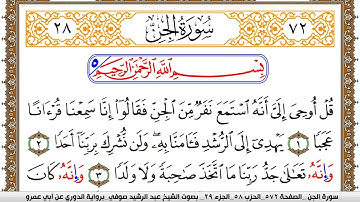 ٢٨ سُورَةُ الْجِنِّ ٧٢
بِسْمِ اللَّهِ الرَّحْمَٰنِ الرَّحِيمِ
قُلْ أُوحِيَ إِلَيَّ أَنَّهُ اسْتَمَعَ نَفَرٌ مِنَ الْجِنِّ فَقَالُوا إِنَّا سَمِعْنَا قُرْءَانًا
عَجَبًا ١ يَهْدِي إِلَى الرُّشْدِ فَـَٔامَنَّا بِهِ وَلَن نُّشْرِكَ بِرَبِّنَا أَحَدًا ٢
وَإِنَّهُ تَعَالَىٰ جَدُّ رَبِّنَا مَا اتَّخَذَ صَاحِبَةً وَلَا وَلَدًا ٣ وَإِنَّهُ كَانَ
سورة الجن . الصفحة ٥٧٢ . الحزب ٥٨ . الجزء ٢٩ . بصوت الشيخ عبد الرشيد صوفي . برواية الدوري عن أبي عمرو